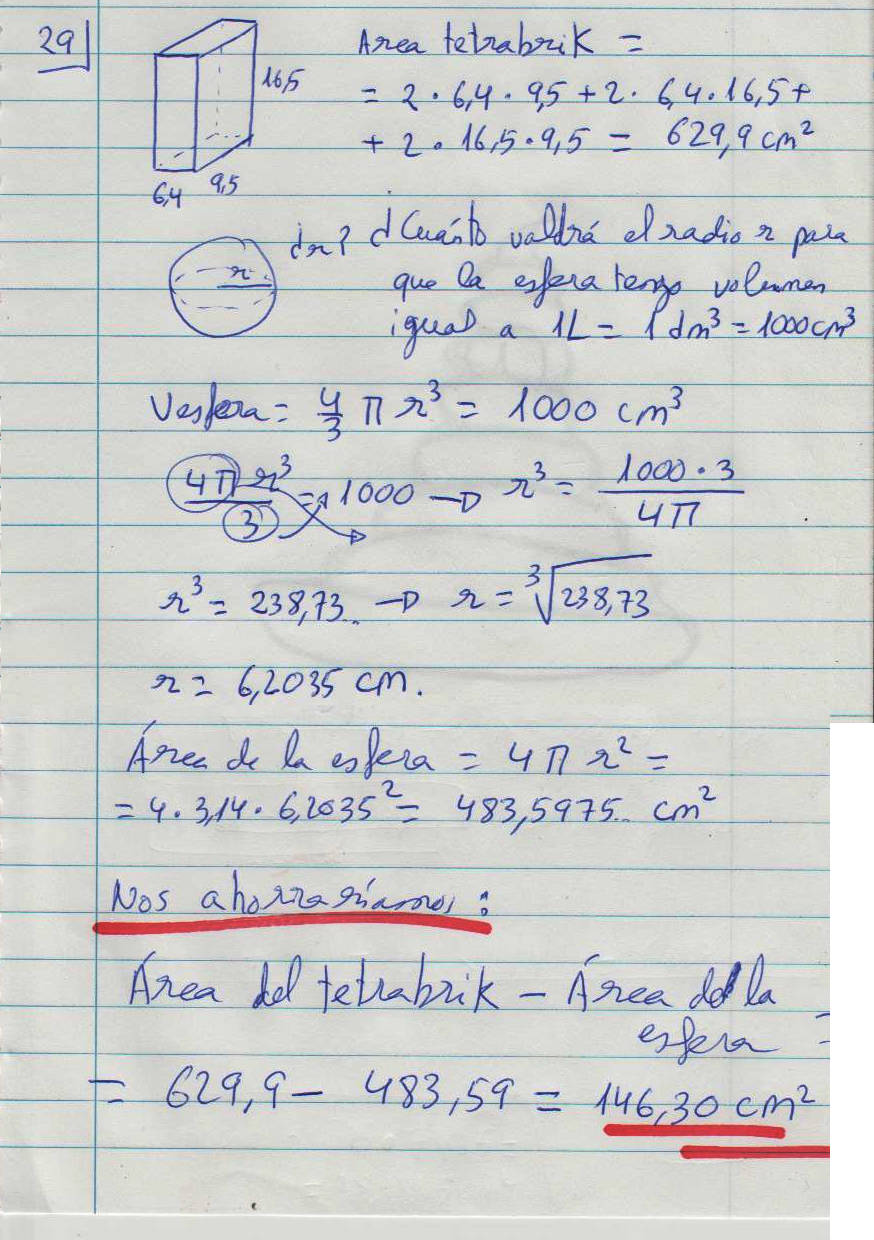 29
16,5
6,4 9,5
Area tetrabrik =
= 2 · 6,4 · 9,5 + 2 · 6,4 · 16,5 +
+ 2 · 16,5 · 9,5 = 629,9 cm²
r
¿r? ¿Cuánto valdrá el radio r para
que la esfera tenga volumen
igual a 1L = 1 dm³ = 1000 cm³
Vesfera = 4/3 π r³ = 1000 cm³
4π r³/3 = 1000 → r³ = 1000 · 3/4π
r³ = 238,73.. → r = ³√238,73
r = 6,2035 cm.
Área de la esfera = 4 π r² =
= 4 · 3,14 · 6,2035² = 483,5975.. cm²
Nos ahorraríamos :
Área del tetrabrik – Área de la
esfera =
= 629,9 – 483,59 = 146,30 cm²